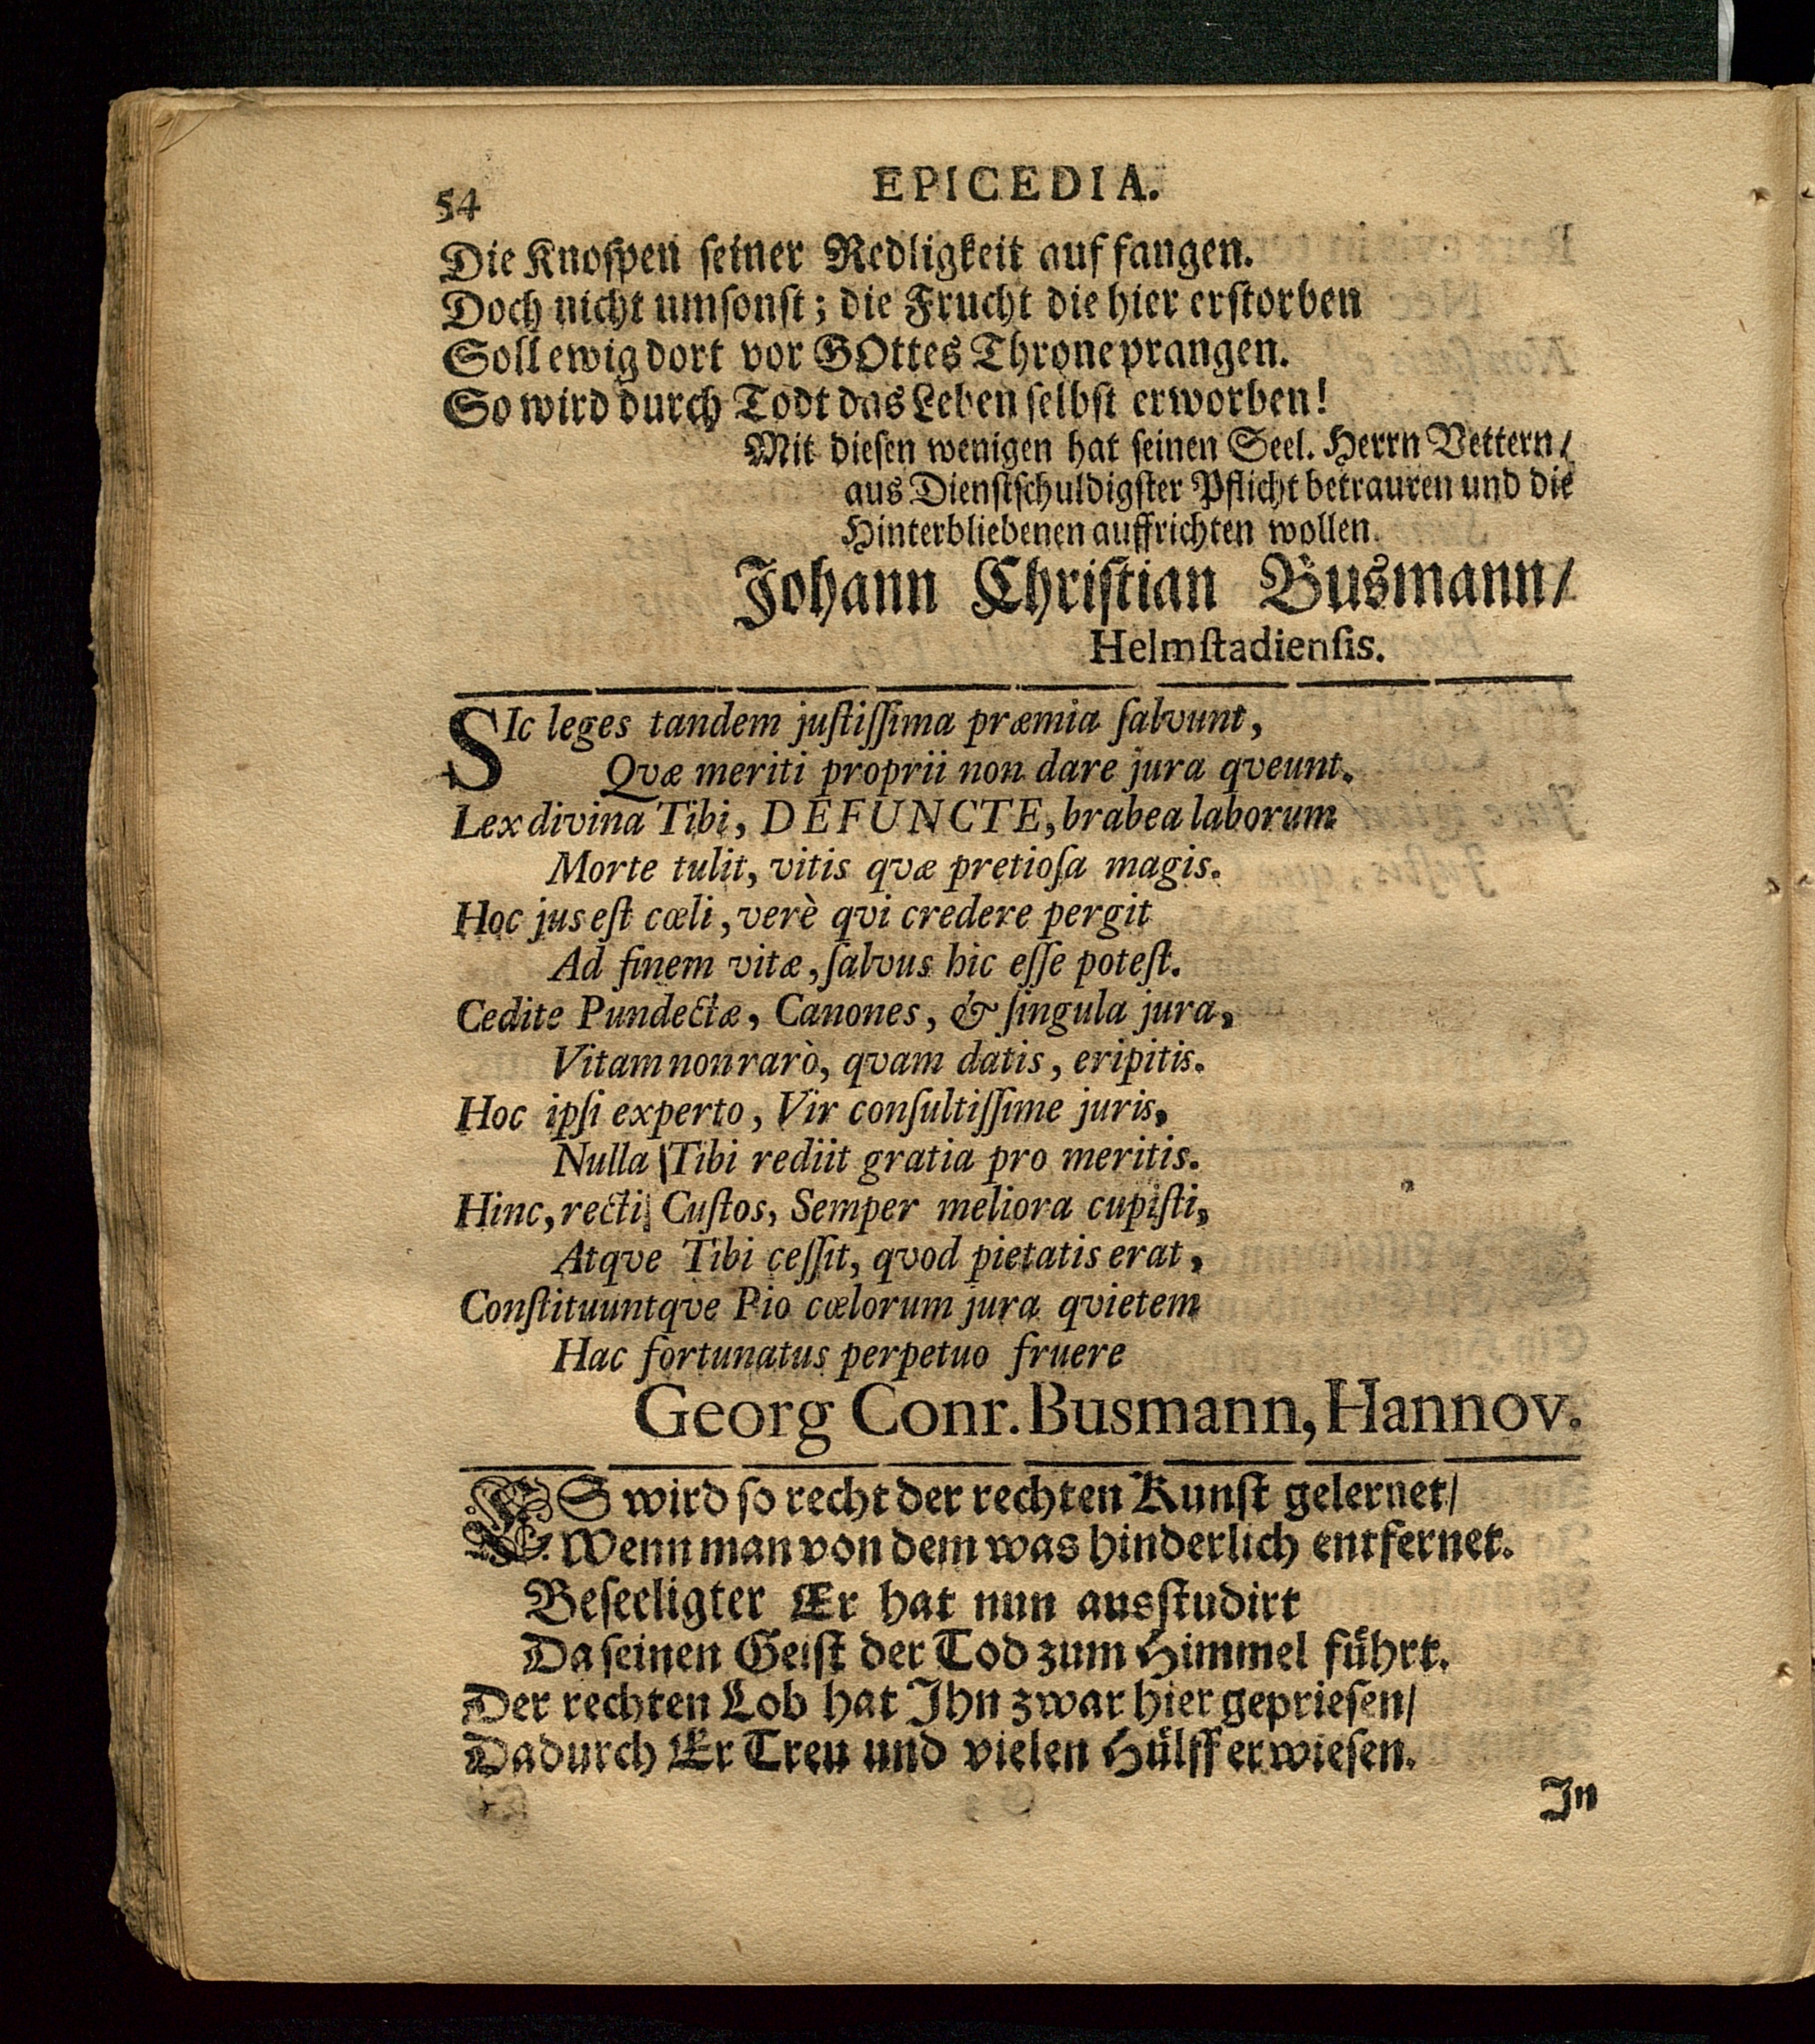 54
EPICEDIA.
Die Knoſpen ſeiner Redligkeit auffangen.
Doch nicht umſonſt; die Frucht die hier erſtorben
Soll ewig dort vor GOttes Throne prangen.
So wird durch Todt das Leben ſelbſt erworben!
Mit dieſen wenigen hat ſeinen Seel. Herrn Vettern/
aus Dienſtſchuldigſter Pflicht betrauren und die
Hinterbliebenen auffrichten wollen.
Johann Chriſtian Busmann/
Helmſtadienſis.
SIc leges tandem juſtiſſima præmia ſalvunt,
Qvæ meriti proprii non dare jura qveunt.
Lex divina Tibi, DEFUNCTE, brabea laborum
Morte tulit, vitis qvæ pretioſa magis.
Hoc jus eſt cœli, verè qvi credere pergit
Ad finem vitæ, ſalvus hic eſſe poteſt.
Cedite Pundectæ, Canones, & ſingula jura,
Vitam non rarò, qvam datis, eripitis.
Hoc ipſi experto, Vir conſultiſſime juris,
Nulla Tibi rediit gratia pro meritis.
Hinc, recti Cuſtos, Semper meliora cupiſti,
Atqve Tibi ceſſit, qvod pietatis erat,
Conſtituuntqve Pio cœlorum jura qvietem
Hac fortunatus perpetuo fruere
Georg Conr. Busmann, Hannov.
ES wird ſo recht der rechten Kunſt gelernet/
Wenn man von dem was hinderlich entfernet.
Beſeeligter Er hat nun ausſtudirt
Da ſeinen Geiſt der Tod zum Himmel fuͤhrt.
Der rechten Lob hat Ihn zwar hier geprieſen/
Dadurch Er Treu und vielen Huͤlff erwieſen.
In